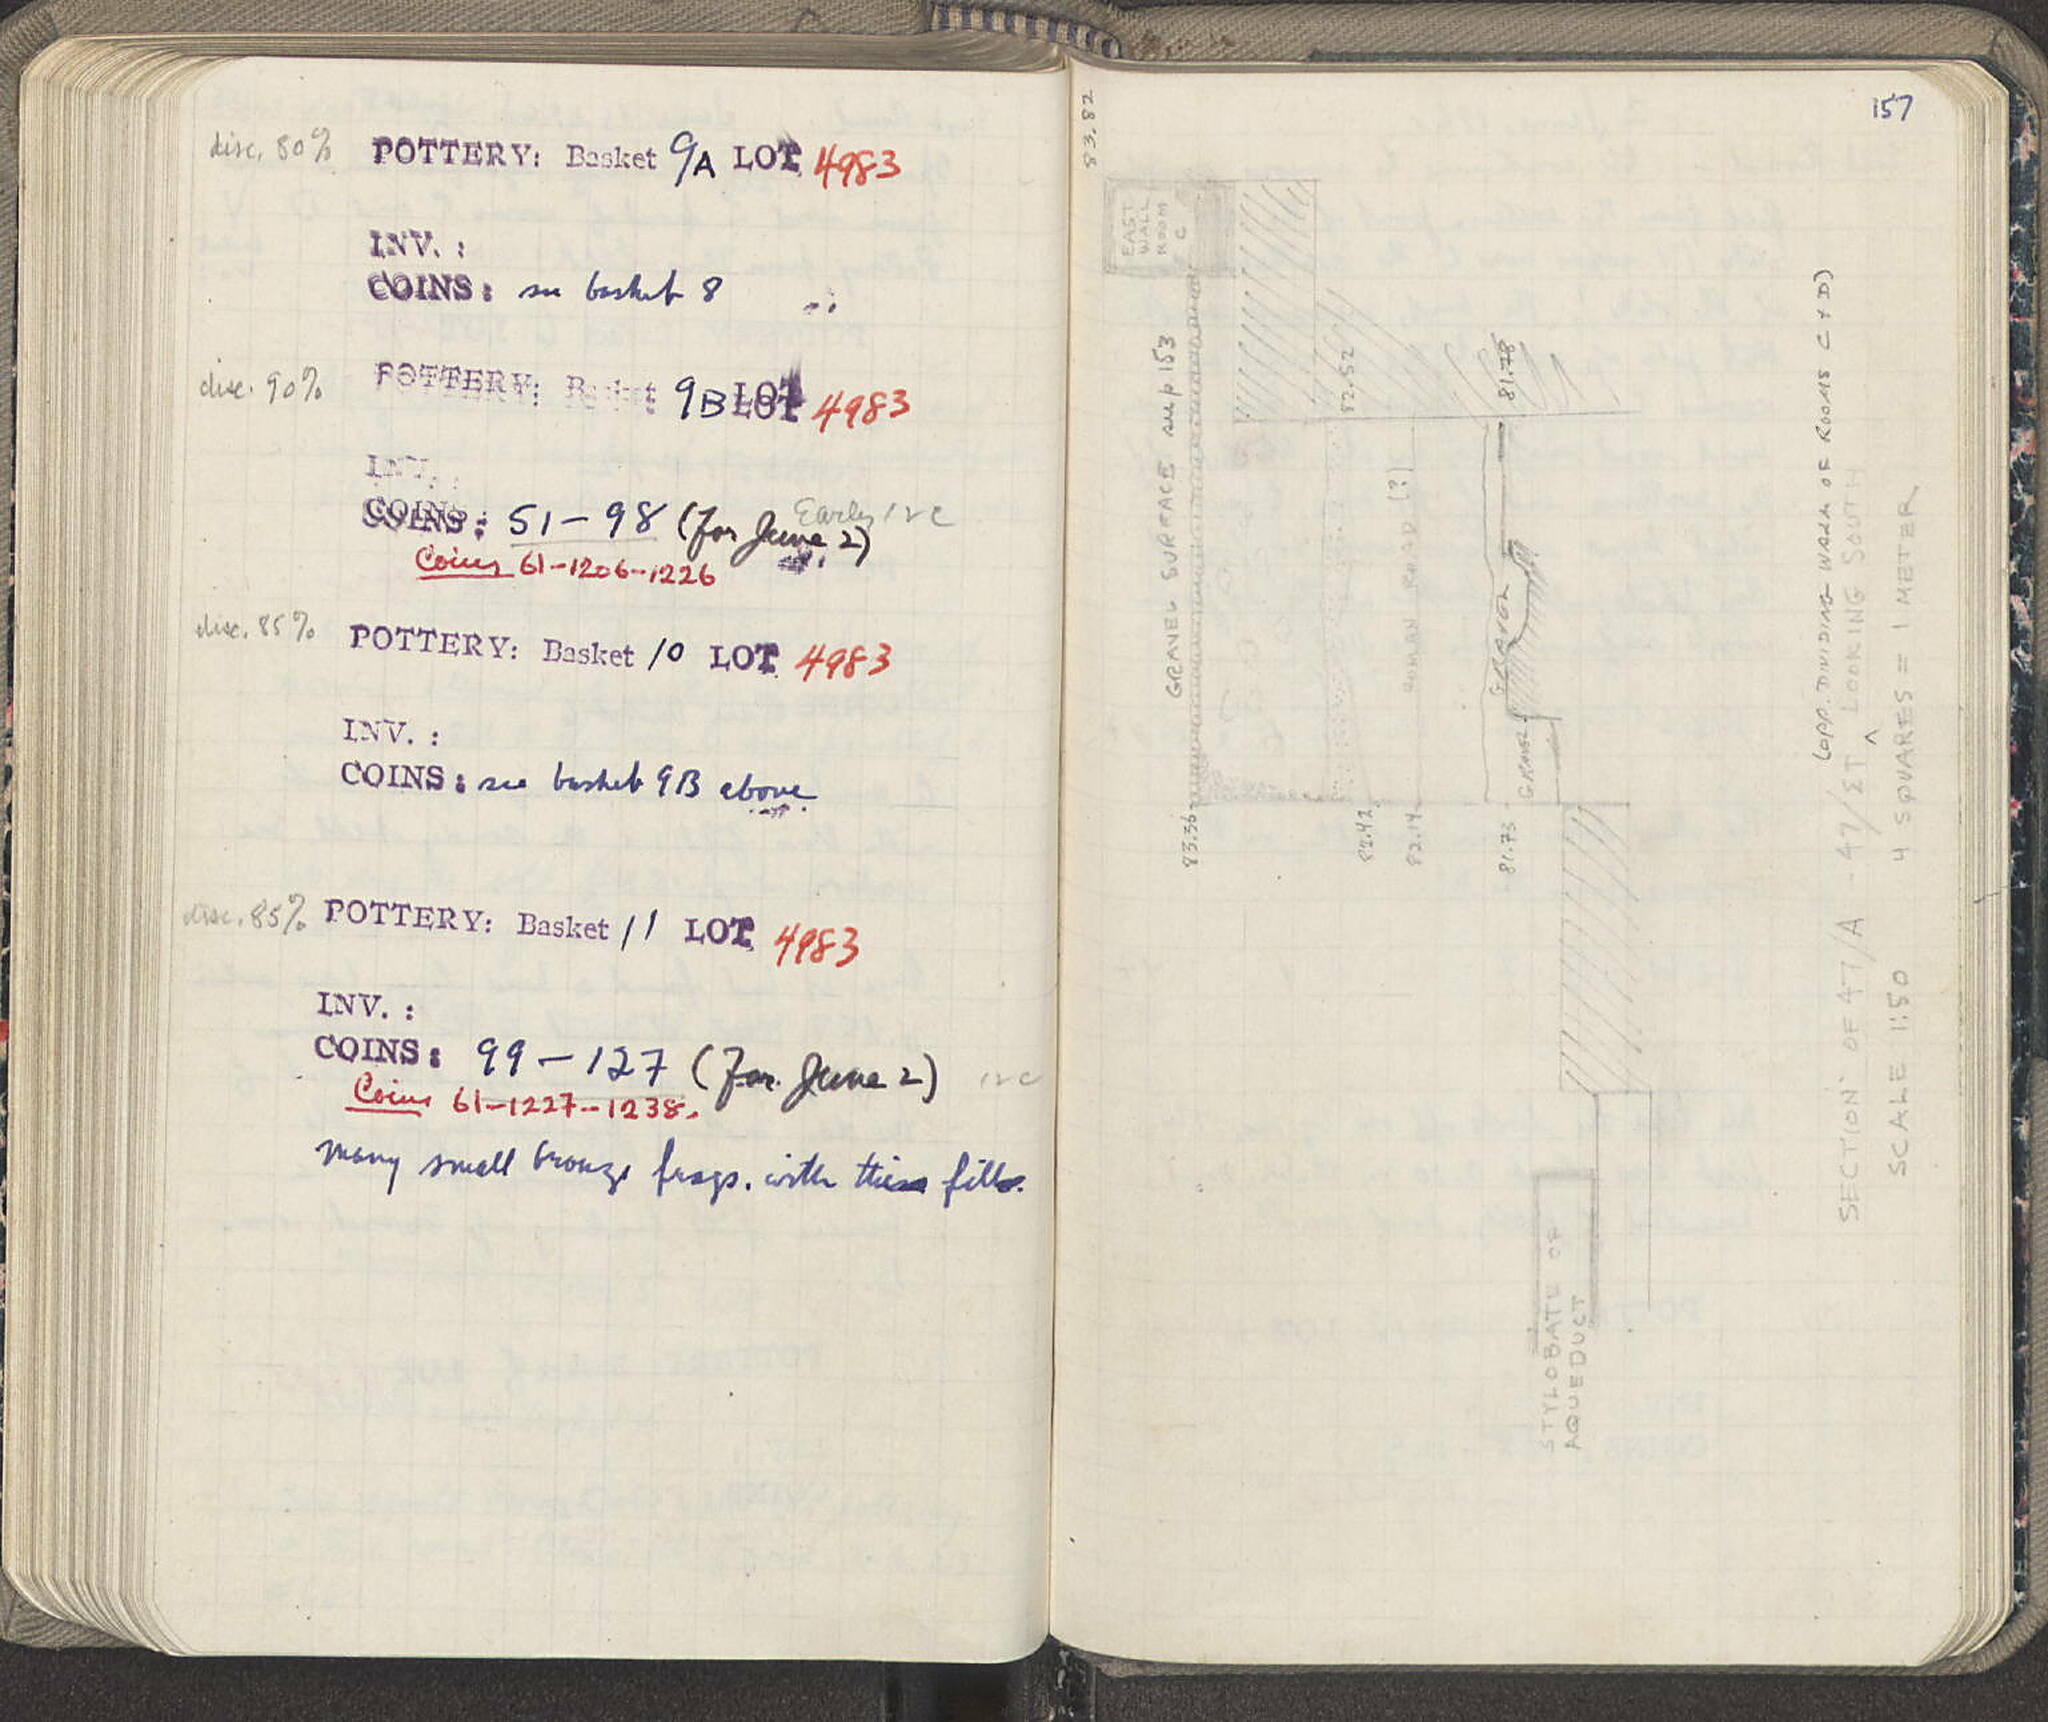 disc. 80% POTTERY: Basket 9A LOT 4983
INV. :
COINS: see basket 8
disc. 90% POTTERY: Basket 9B LOT 4983
INV. :
COINS: 51-98 (for June 2) Early 12 C
Coins 61-1206-1226
disc. 85% POTTERY: Basket 10 LOT 4983
INV. :
COINS: see basket 9B above
disc. 85% POTTERY: Basket 11 LOT 4983
INV. :
COINS: 99-127 (For June 2) 12 C
Coins 61-1227-1238.
many small bronze frags. with this fill.
157
83.82
EAST
WALL
ROOM
C
GRAVEL SURFACE sup p 153
83.36
82.52
82.42
ROMAN ROAD (?)
82.14
81.78
GRAVEL
81.73
GRAVEL
STYLOBATE OF
AQUEDUCT
(OPP. DIVIDING WALL OF ROOMS C + D)
SECTION OF 47/A - 47/ΣT LOOKING SOUTH
SCALE 1:50 4 SQUARES = 1 METER